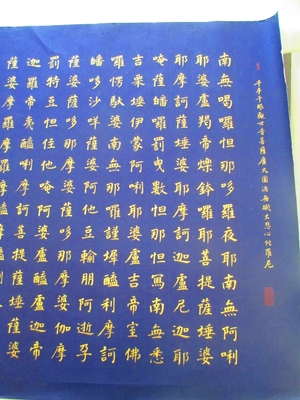 千手千眼觀世音菩薩廣大圓滿無礙大悲心陀羅尼
南無喝囉怛那哆囉夜耶南無阿唎
耶婆盧羯帝爍鉢囉耶菩提薩埵婆
耶摩訶薩埵婆耶摩訶迦盧尼迦耶
唵薩皤囉罰曳數怛那怛寫南無悉
吉栗埵伊蒙阿唎耶婆盧吉帝室佛
囉楞馱婆南無那囉謹墀醯利摩訶
皤哆沙咩薩婆阿他豆輸朋阿逝孕
薩婆薩哆那摩婆薩哆那摩婆伽摩
罰特豆怛姪他唵阿婆盧醯盧迦帝
迦羅帝夷醯唎摩訶菩提薩埵薩婆
薩婆摩